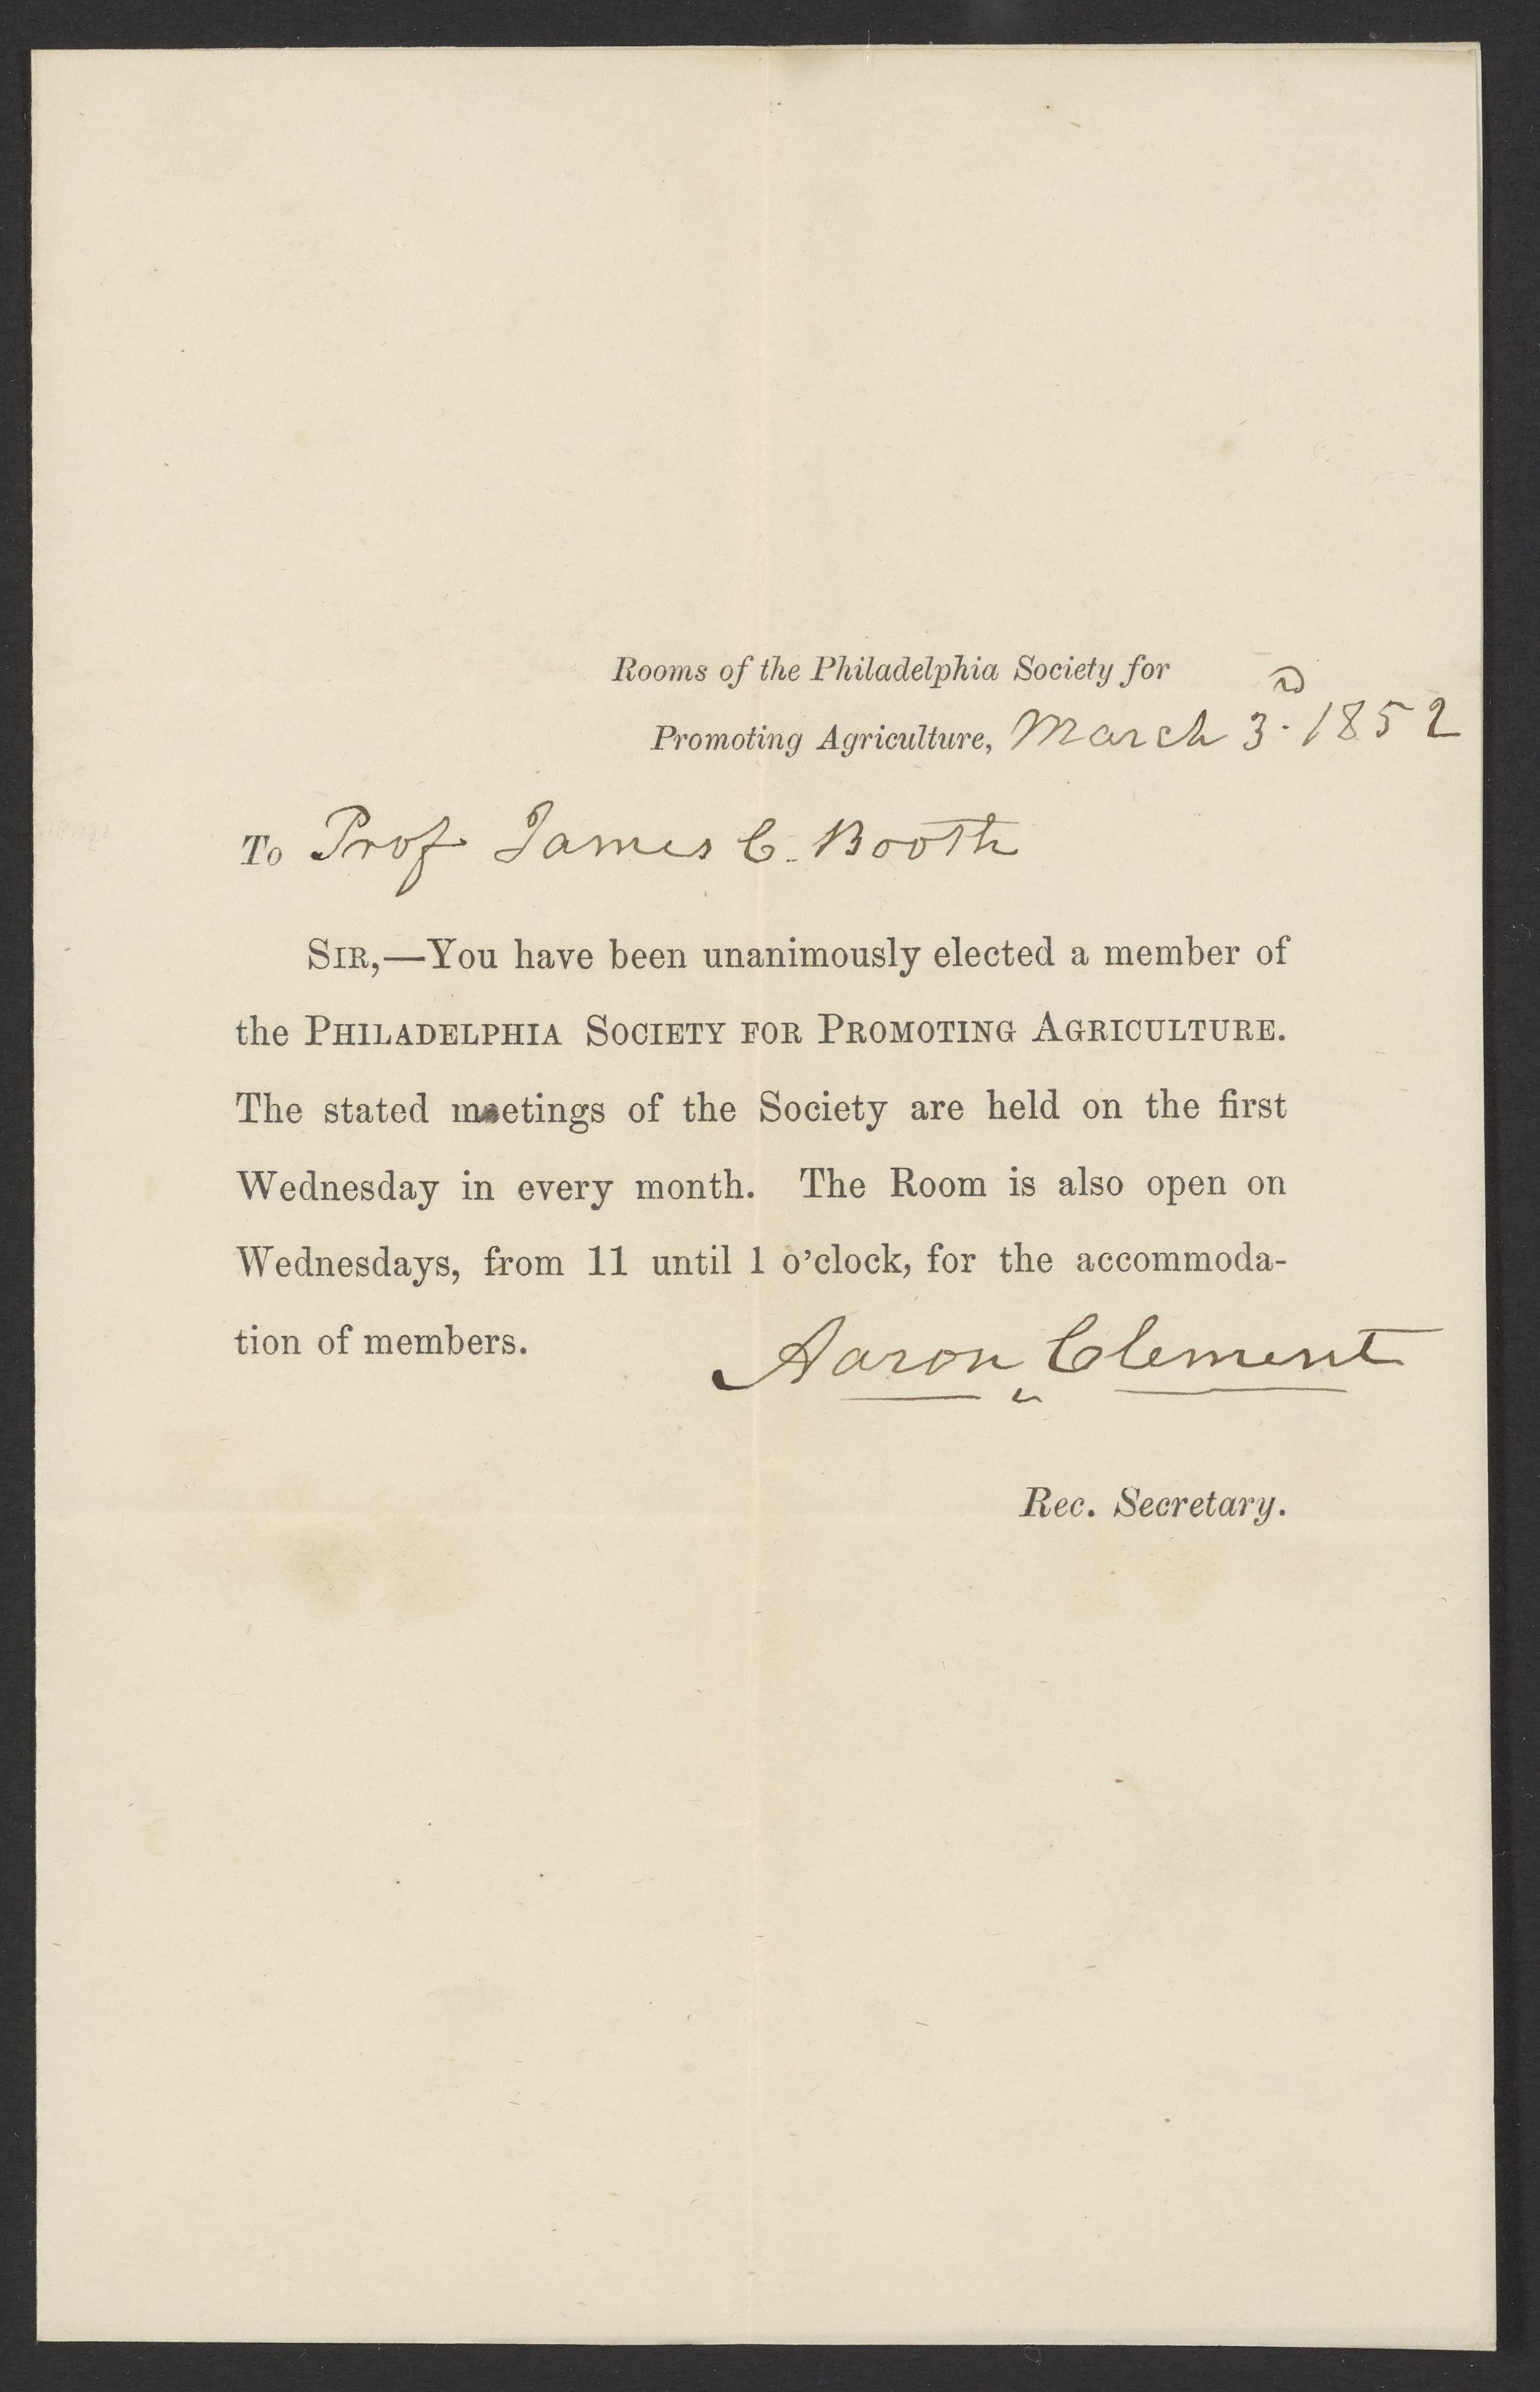 Rooms of the Philadelphia Society for
Promoting Agriculture, March 3rd 1852
To Prof James C. Booth
SIR,—You have been unanimously elected a member of
the PHILADELPHIA SOCIETY FOR PROMOTING AGRICULTURE.
The stated meetings of the Society are held on the first
Wednesday in every month. The Room is also open on
Wednesdays, from 11 until 1 o'clock, for the accommoda-
tion of members.
Aaron Clement
Rec. Secretary.